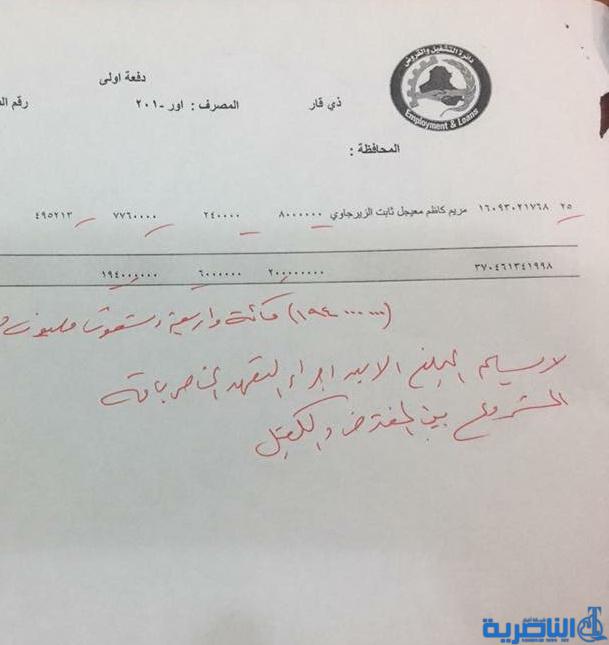 دائرة التشغيل والقروض
Employment & Loans
دفعة اولى
ذي قار المصرف : اور -٢٠١
المحافظة :
٢٥ ١٦٠٩٣٠٢١٧٦٨ مريم كاظم معيجل ثابت الزيرجاوي ٨٠٠٠٠٠٠ ٢٤٠٠٠٠ ٧٧٦٠٠٠٠ ٤٩٥٢١٣
٣٧٠٤٦١٣٤١٩٩٨ ٢٠٠,٠٠٠٠٠٠ ٦٠٠٠٠٠٠ ١٩٤٠٠٠,٠٠٠
مائة واربعة وتسعون مليون
لا يسلم المبلغ الا بعد اجراء التعهد الخاص باقامة
المشروع بين المقترض والكفيل
شبكة اخبار
الناصرية